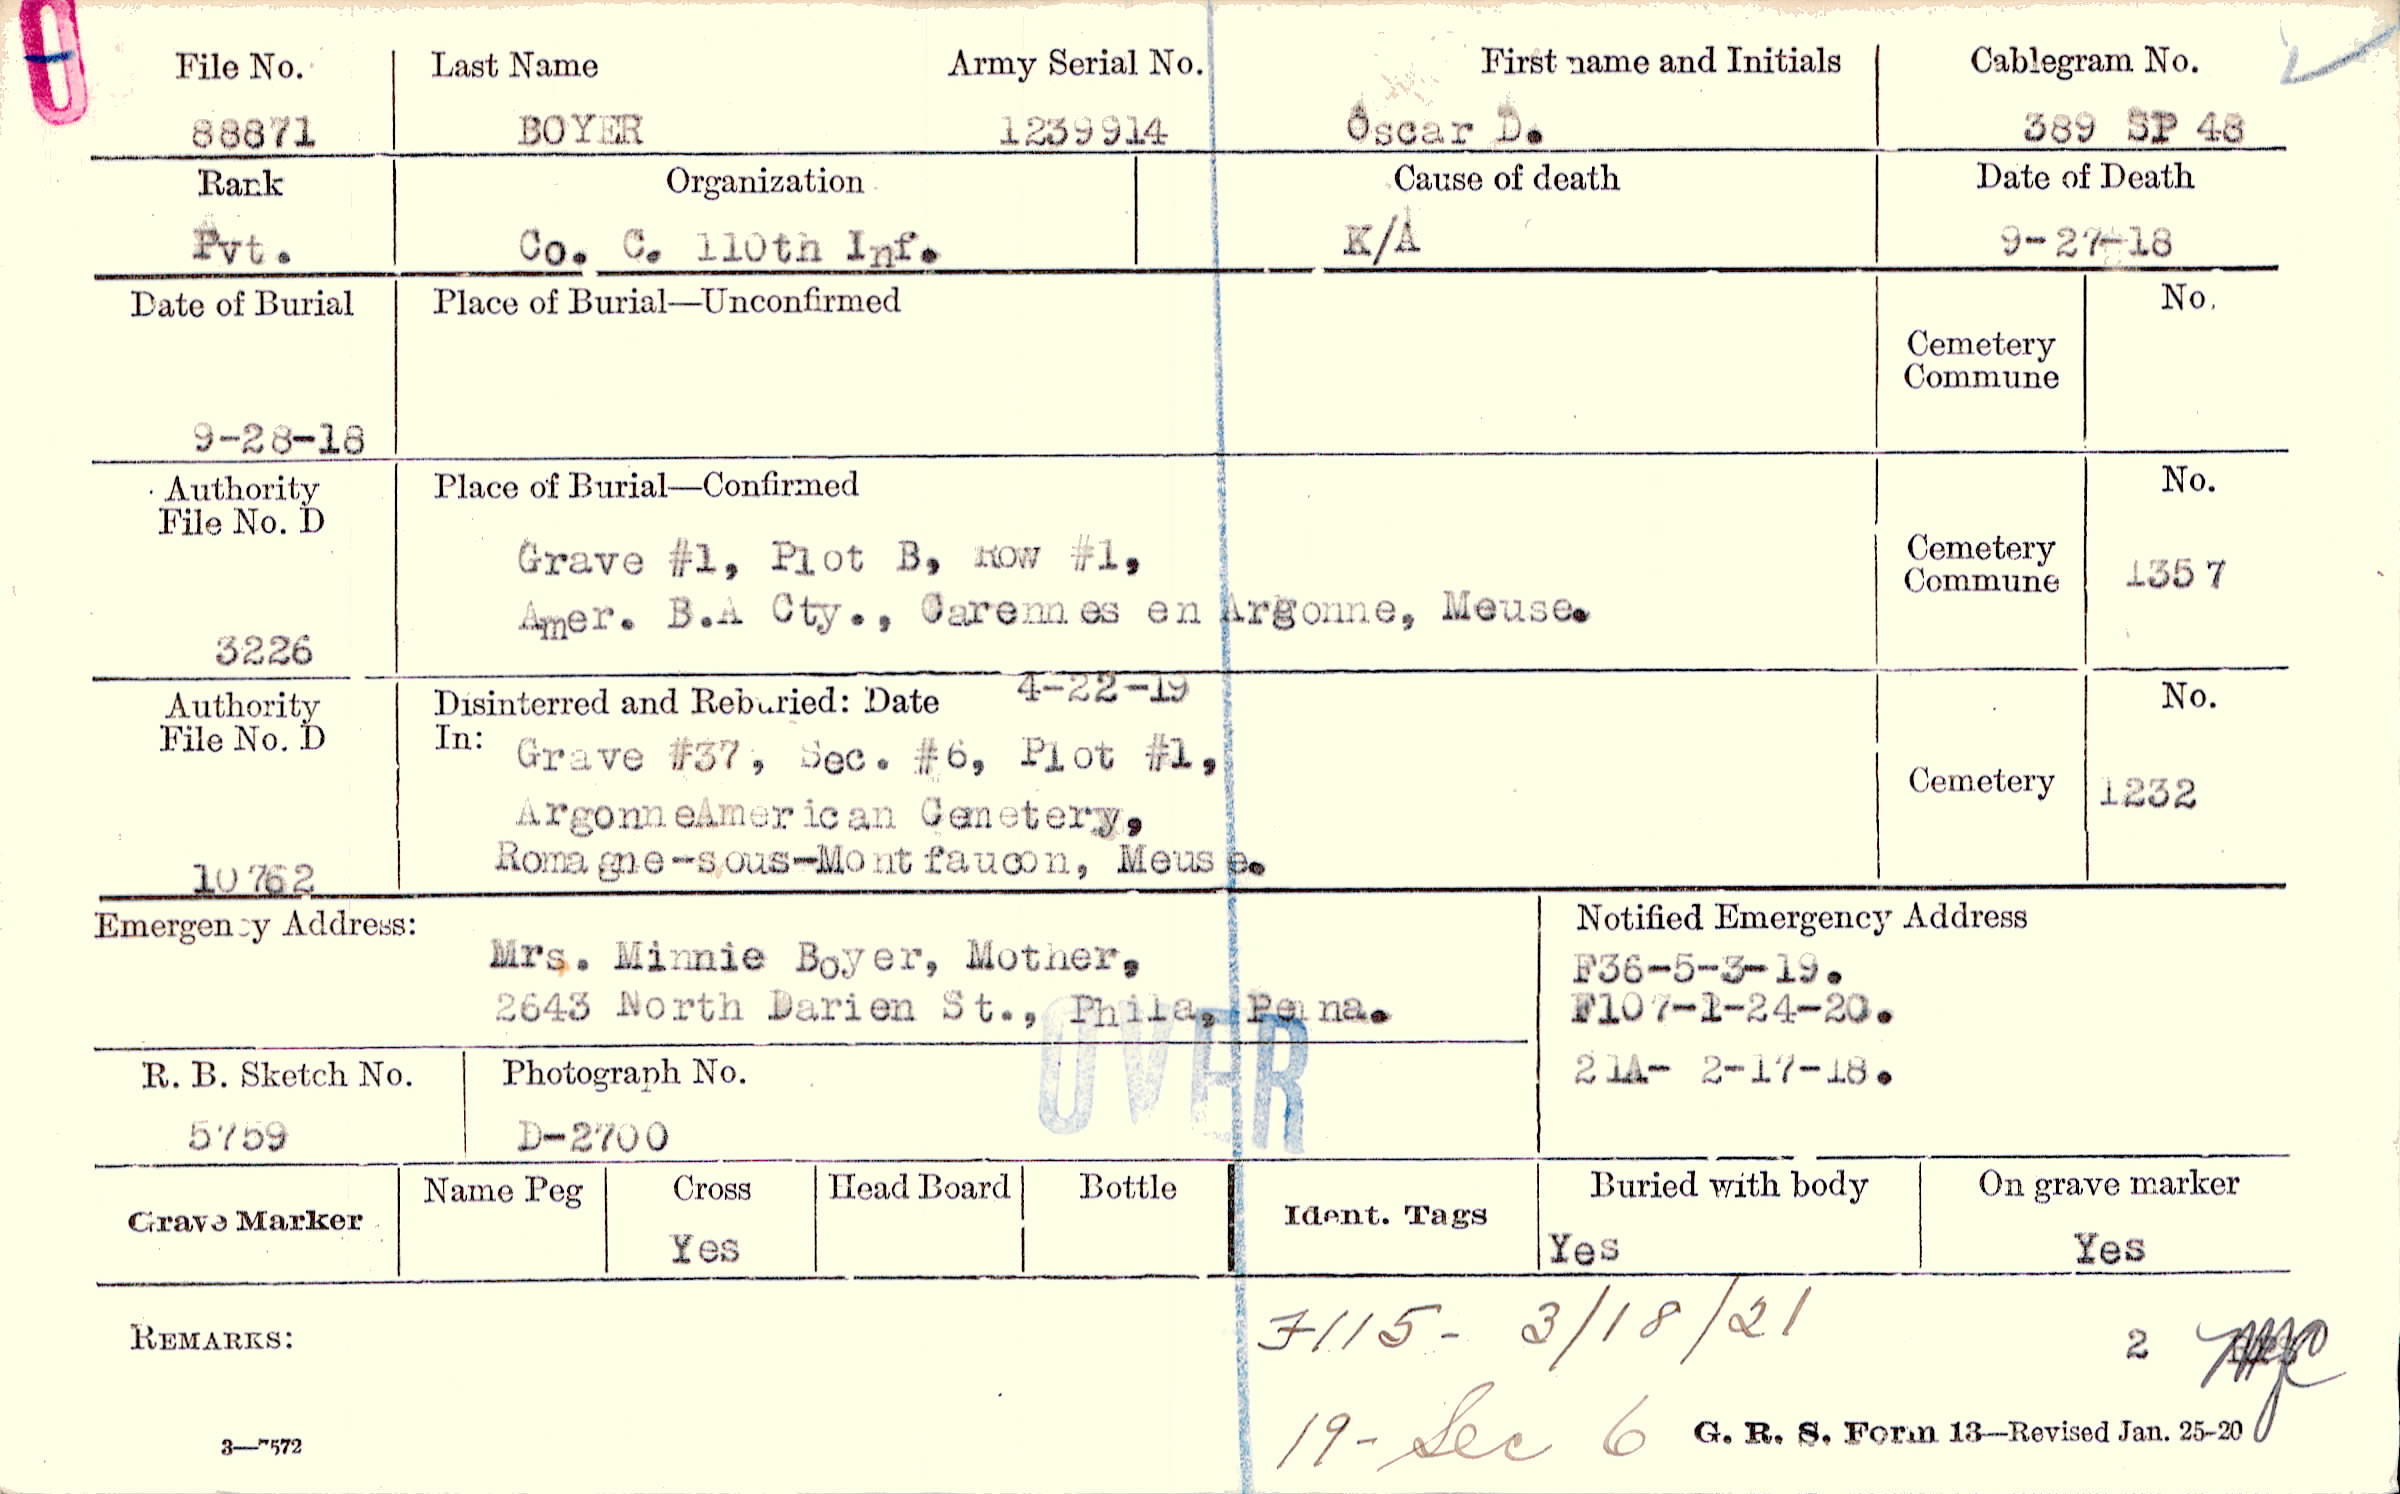 File No. Last Name Army Serial No. First name and Initials Cablegram No.
88871 BOYER 1239914 Oscar D. 389 SP 48
Rank Organization Cause of death Date of Death
Pvt. Co. C. 110th Inf. K/A 9-27-18
Date of Burial Place of Burial—Unconfirmed No.
Cemetery
Commune
9-28-18
Authority Place of Burial—Confirmed No.
File No. D
Grave #1, Plot B, Row #1, Cemetery
Commune 1357
Amer. B.A Cty., Carennes en Argonne, Meuse.
3226
Authority Disinterred and Reburied: Date 4-22-19 No.
File No. D In: Grave #37, Sec. #6, Plot #1,
Cemetery 1232
ArgonneAmerican Cemetery,
Romagne-sous-Montfaucon, Meuse.
10762
Emergency Address: Notified Emergency Address
Mrs. Minnie Boyer, Mother, F36-5-3-19.
2643 North Darien St., Phila, Penna. F107-1-24-20.
OVER
R. B. Sketch No. Photograph No. 21A- 2-17-18.
5759 D-2700
Grave Marker Name Peg Cross Head Board Bottle Ident. Tags Buried with body On grave marker
Yes Yes Yes
REMARKS: F115- 3/18/21 2
19- Sec 6 G. R. S. Form 13—Revised Jan. 25-20
3—7572